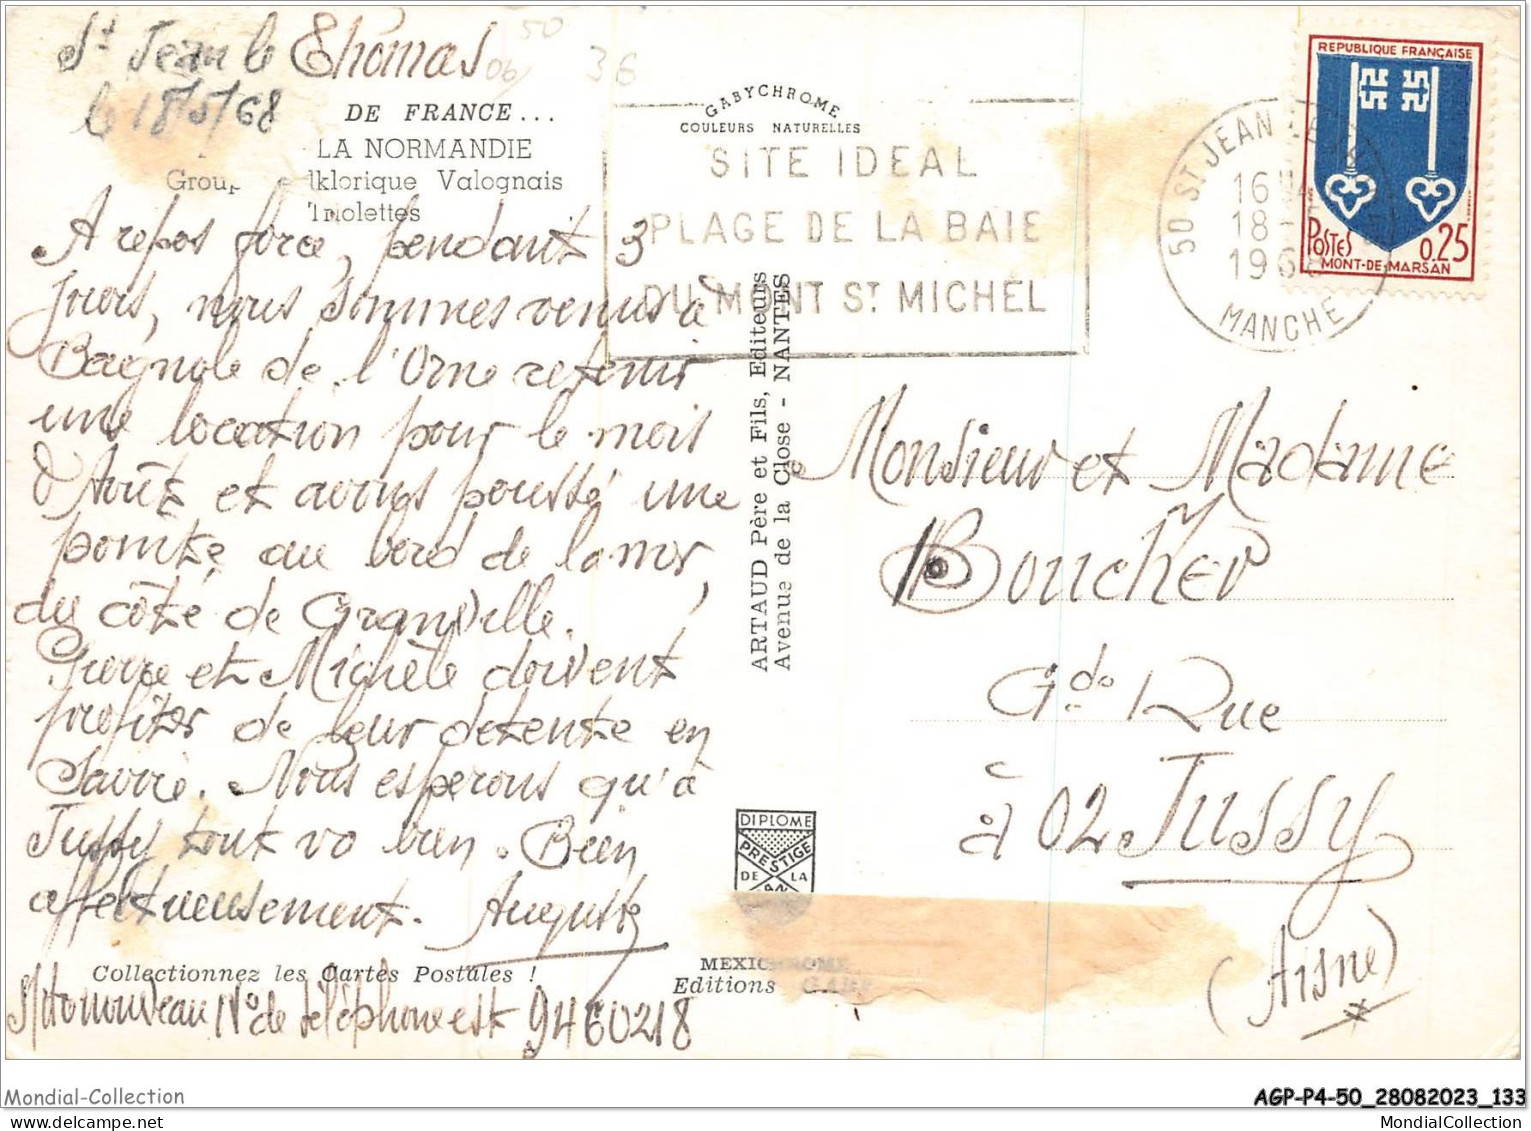 St Jean le Thomas
le 18/5/68
50
06
36
DE FRANCE...
LA NORMANDIE
Group klorique Valognais
Triolettes
A repos forcé, pendant 3
jours, nous sommes venus à
Bagnole de l'Orne retenir
une location pour le mois
d'Août et avons poussé une
pointe au bord de la mer,
du côté de Granville.
Pierre et Michèle doivent
profiter de leur détente en
Savoie. Nous espérons qu'à
Jussy tout va bien. Bien
affectueusement. Auguste
Collectionnez les Cartes Postales !
nouveau N° de téléphone est 9460218
GABYCHROME
COULEURS NATURELLES
SITE IDEAL
PLAGE DE LA BAIE
DU MONT ST MICHEL
ARTAUD Père et Fils, Editeurs
Avenue de la Close - NANTES
DIPLOME
PRESTIGE
DE LA
MEXICHROME
Editions GABY
50 ST JEAN LE
16H
18-
1968
MANCHE
REPUBLIQUE FRANÇAISE
POSTES 0.25
MONT-DE-MARSAN
Monsieur et Madame
Boucher
Gde Rue
à 02 Jussy
(Aisne)
Mondial-Collection
AGP-P4-50_28082023_133
MondialCollection.com